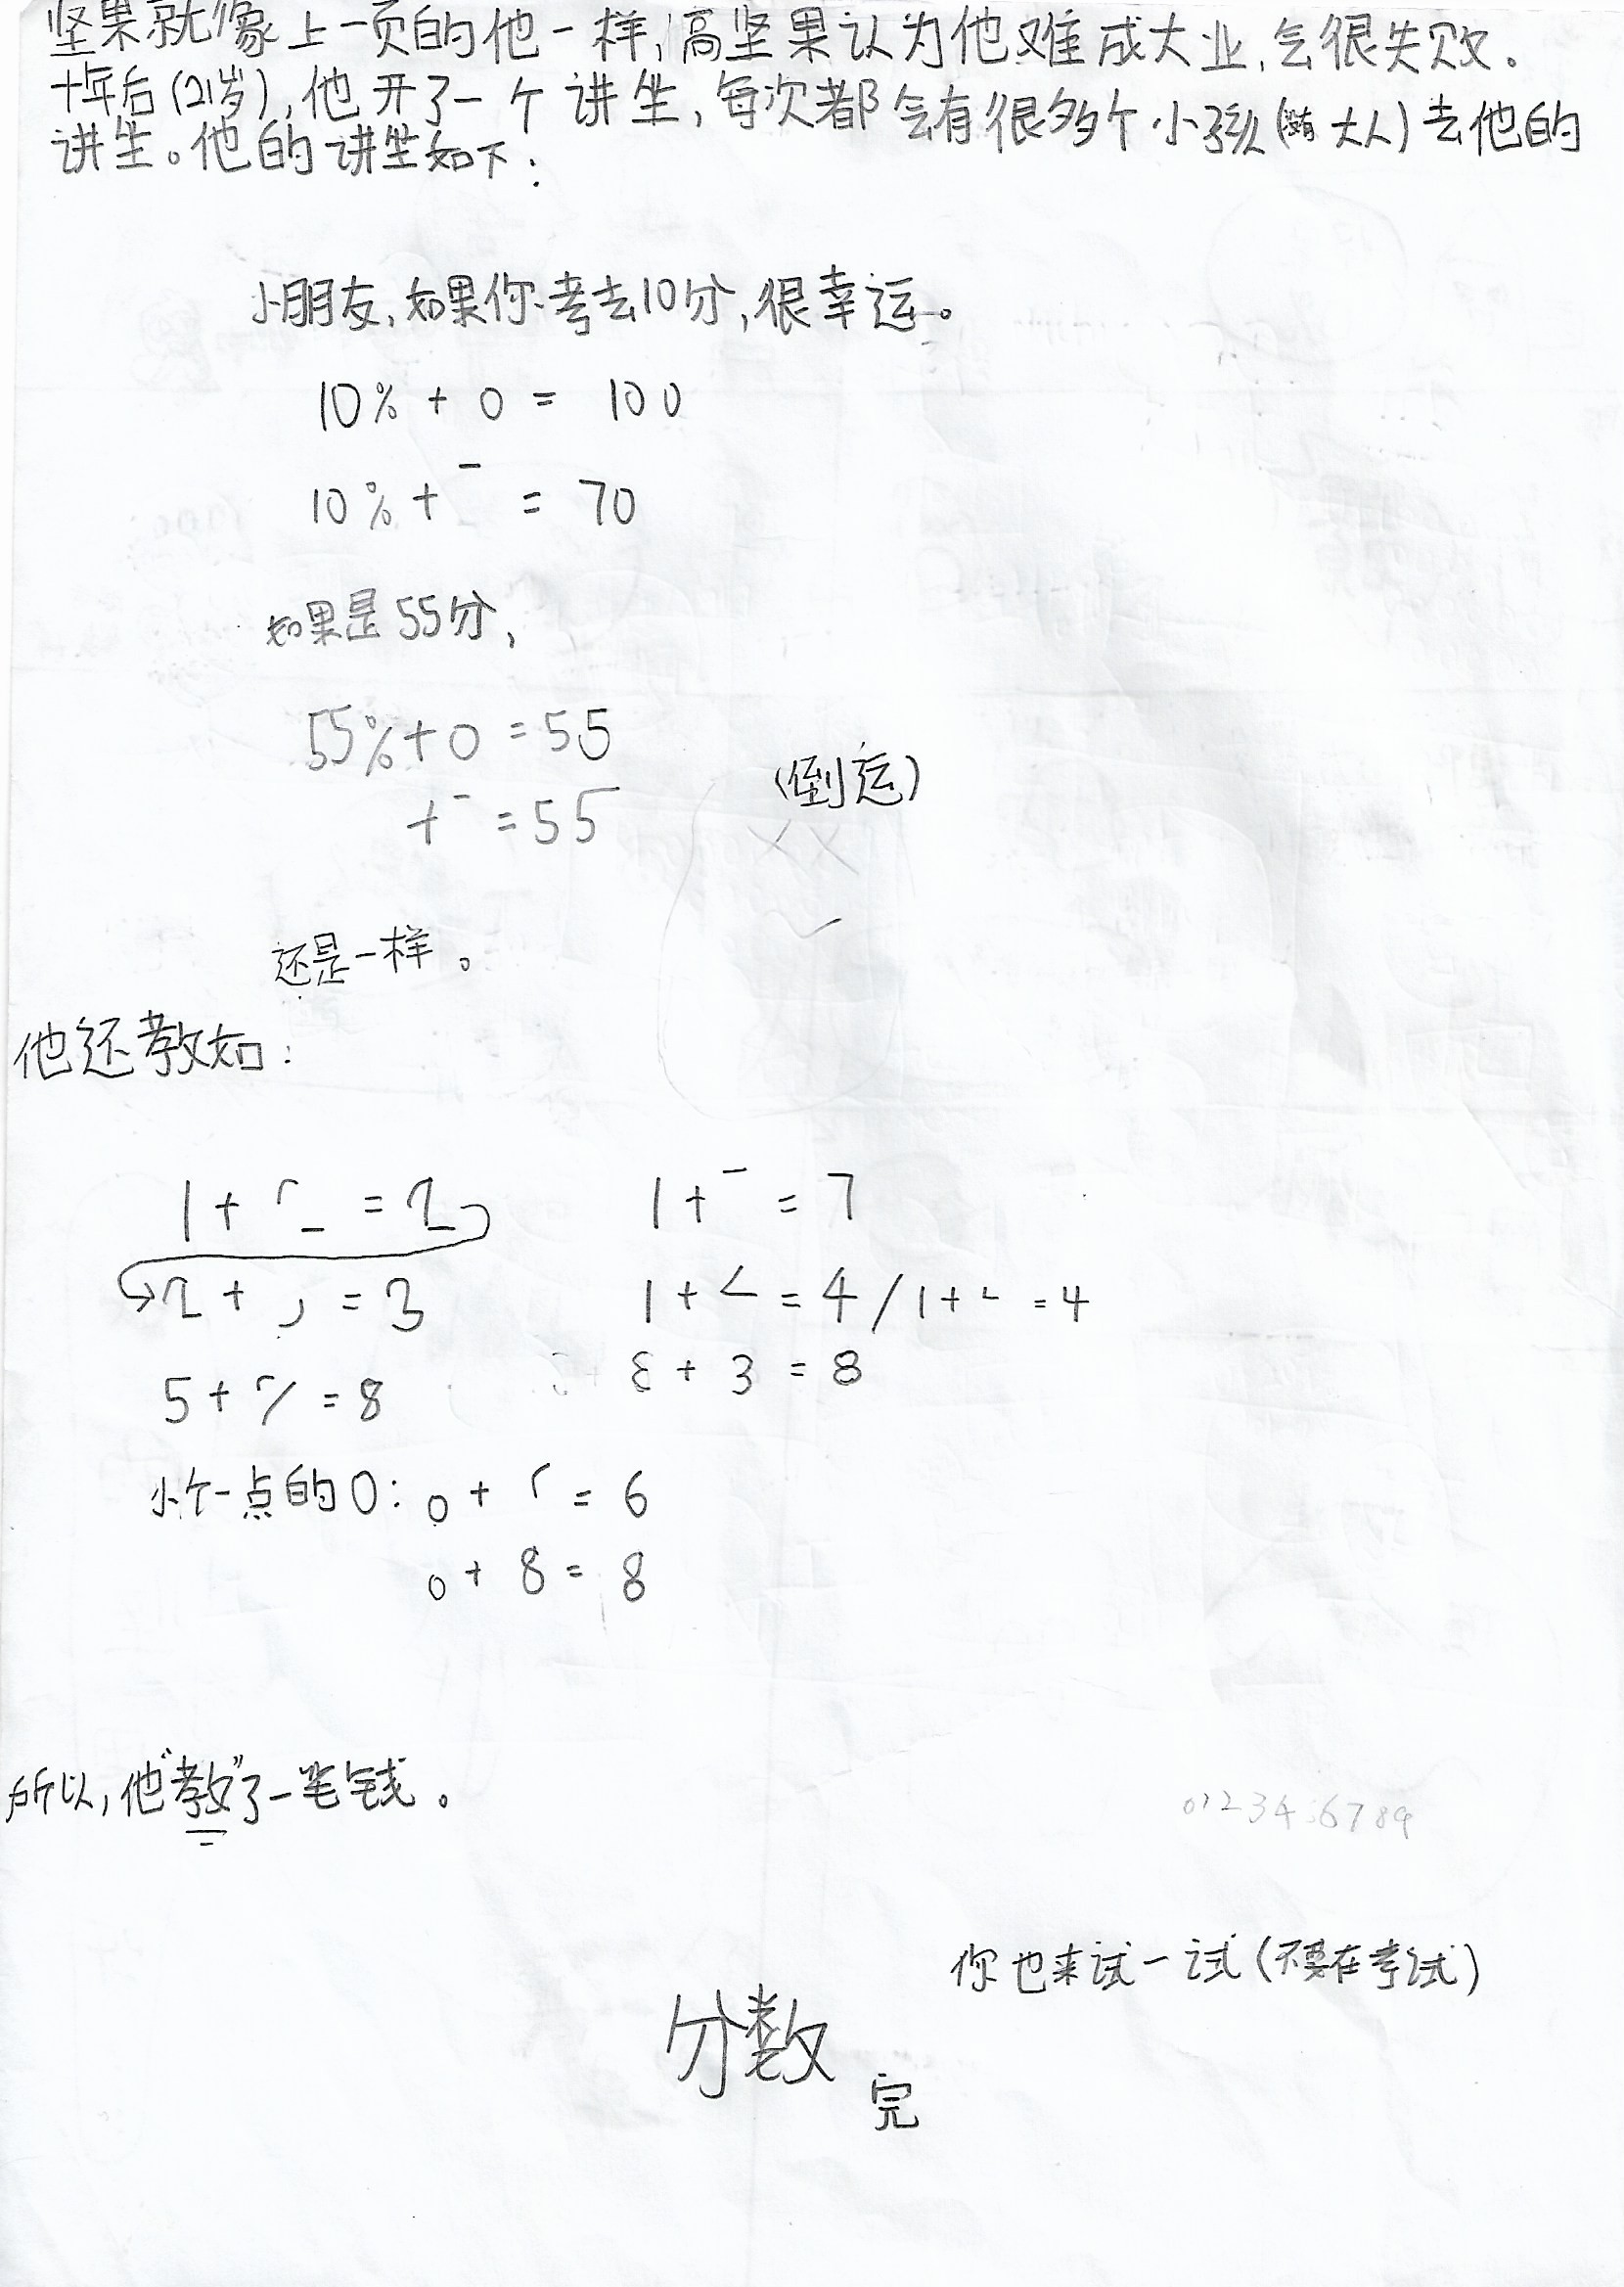 坚果就像上一页的他一样,高坚果认为他难成大业,会很失败。
十年后(21岁),他开了一个讲坐,每次都会有很多个小孩(大人)去他的
讲坐。他的讲坐如下:
小朋友,如果你考去10分,很幸运。
10% + 0 = 100
10% + ¯ = 70
如果是55分,
55% + 0 = 55
+ ¯ = 55
(倒运)
还是一样。
他还教如:
1 + = 2
1 + ¯ = 7
2 + = 3
1 + ∠ = 4 / 1 + ∟ = 4
5 + = 8
ε + 3 = 8
小个一点的0: 0 + = 6
0 + 8 = 8
所以,他"教"了一笔钱。
0123456789
你也来试一试(不要在考试)
分数
完